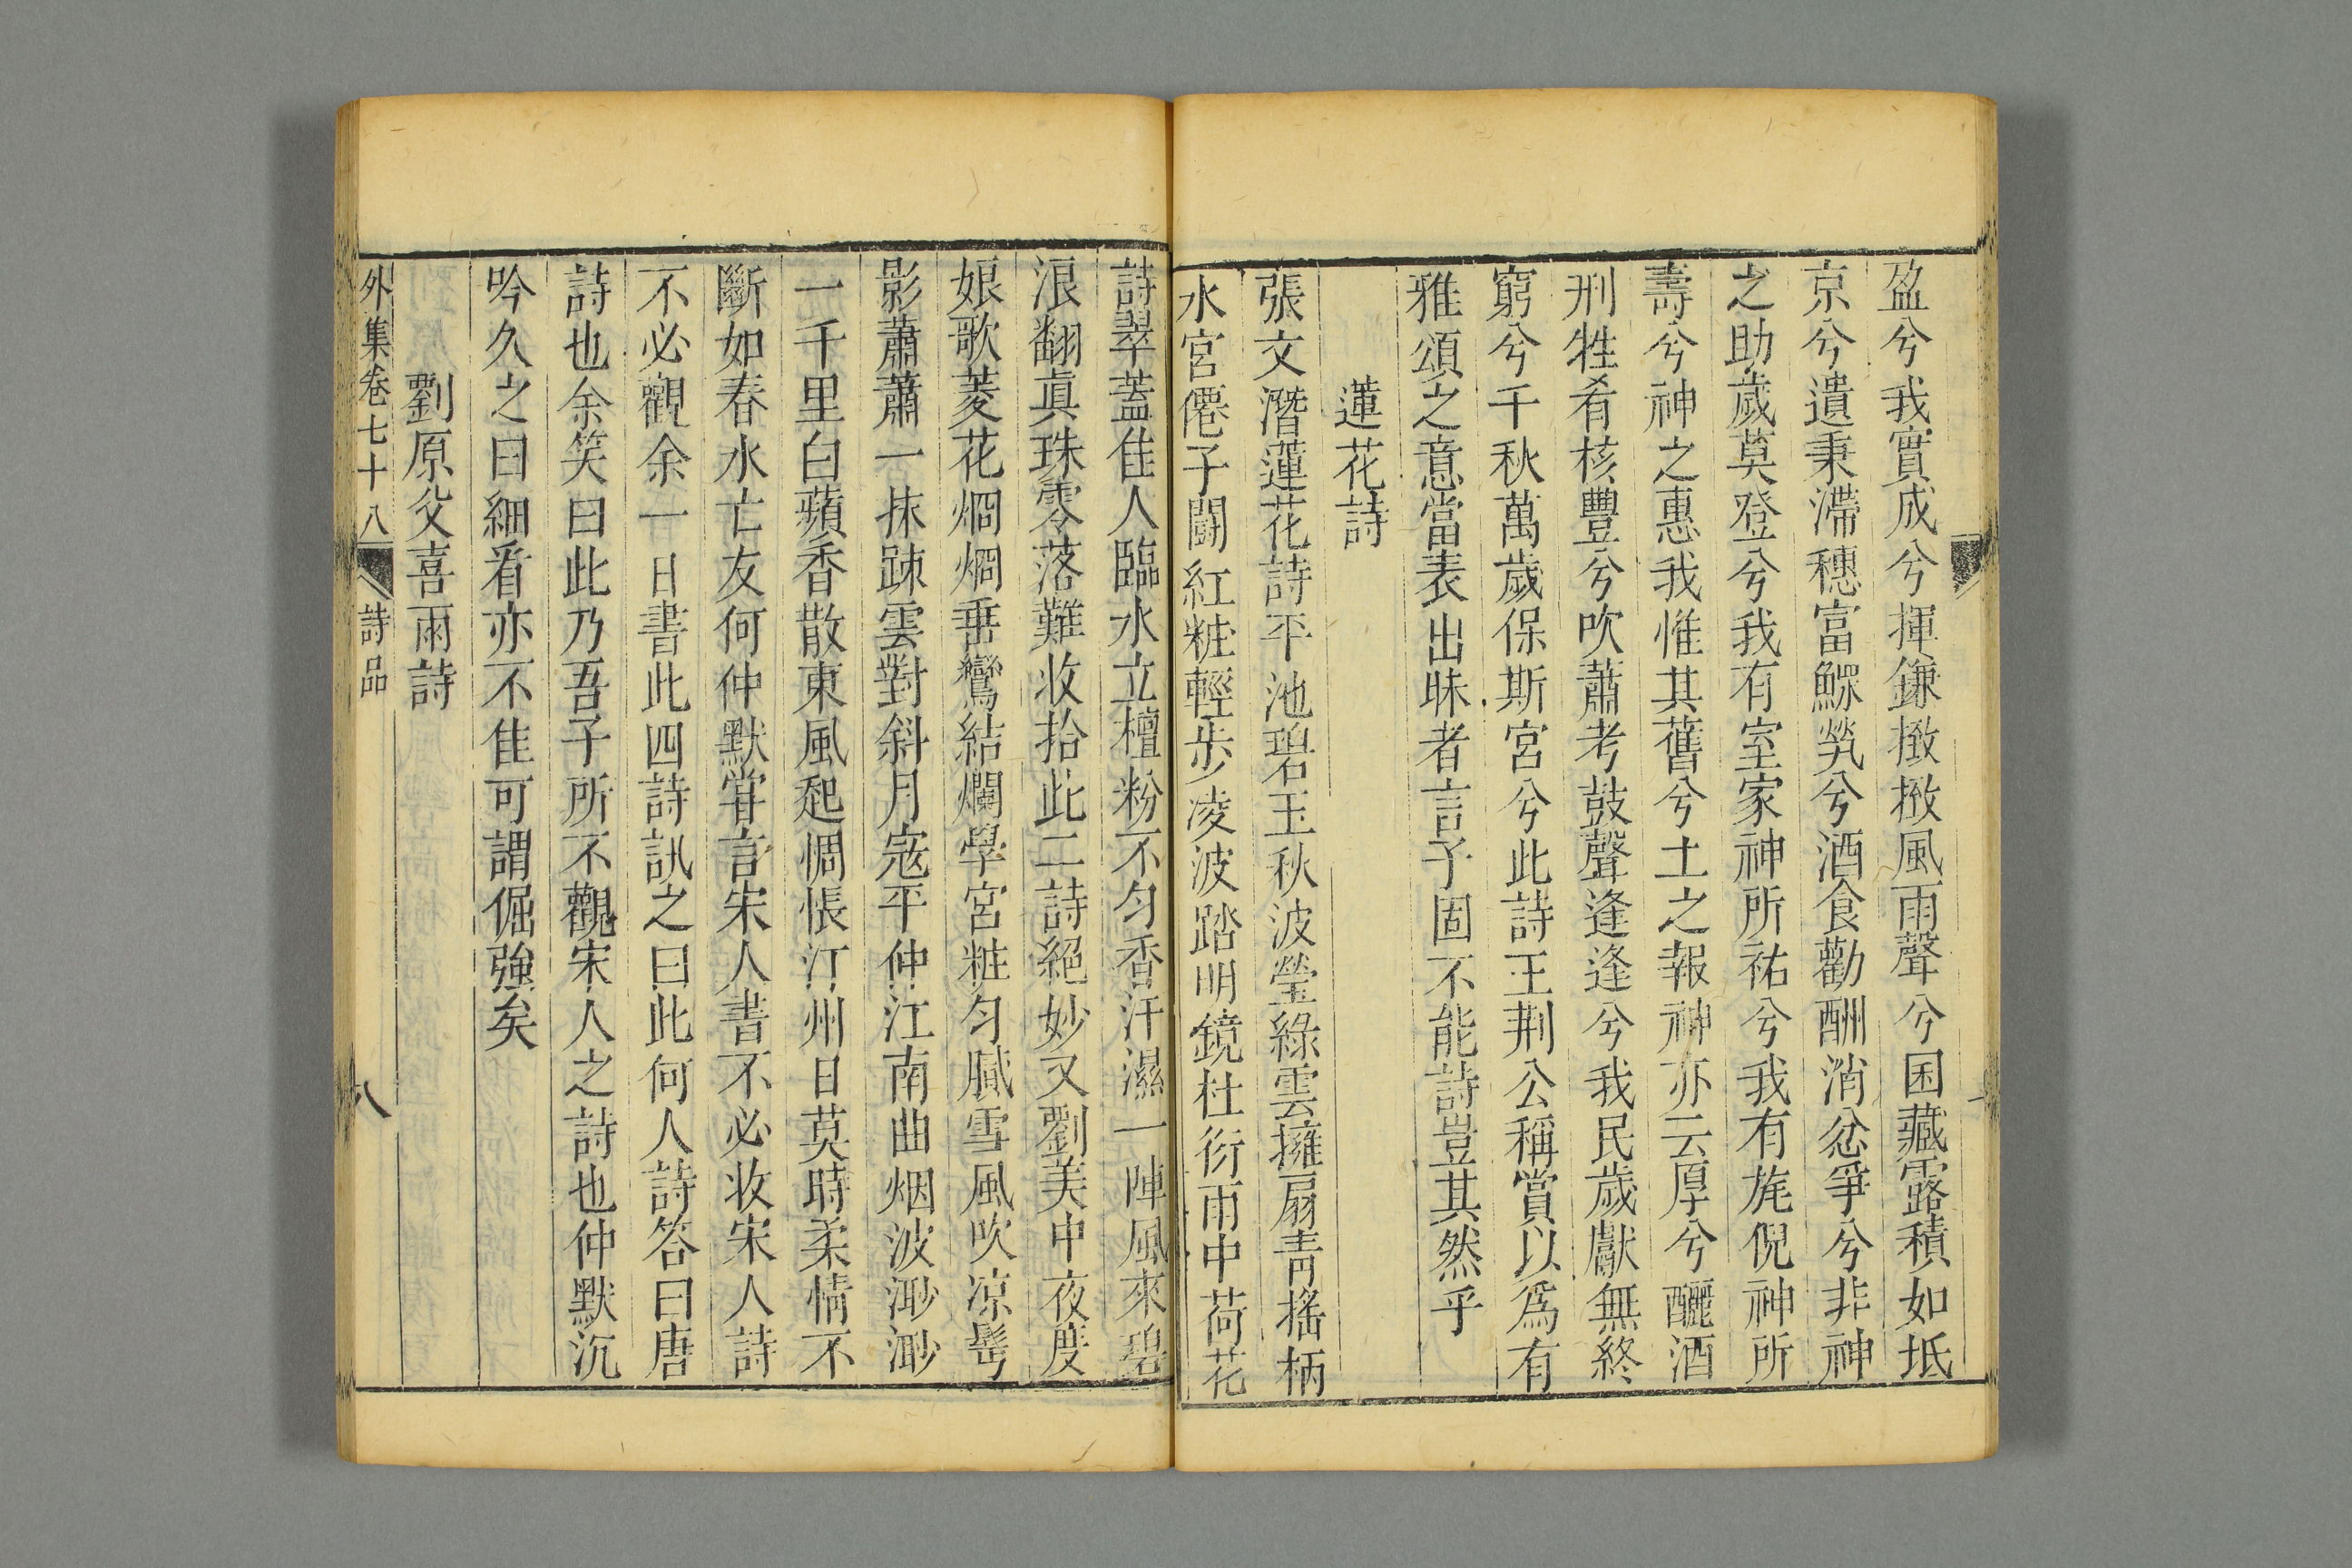 盈兮我實成兮揮鎌撥撥風雨聲兮囷藏露積如坻
京兮遺秉滯穗富鰥㷀兮酒食勸酬消忿爭兮非神
之助歲莫登兮我有室家神所祐兮我有旄倪神所
壽兮神之惠我惟其舊兮土之報神亦云厚兮釃酒
刑牲肴核豐兮吹蕭考鼓聲逢逢兮我民歲獻無終
窮兮千秋萬歲保斯宮兮此詩王荆公稱賞以爲有
雅頌之意當表出昧者言子固不能詩豈其然乎
蓮花詩
張文潛蓮花詩平池碧玉秋波瑩綠雲擁扇青搖柄
水宮僊子鬪紅粧輕步凌波踏明鏡杜衍雨中荷花
詩翠蓋佳人臨水立檀粉不匀香汗濕一陣風來碧
浪翻眞珠零落難收拾此二詩絕妙又劉美中夜度
娘歌菱花烱烱垂鸞結爛學宮粧匀膩雪風吹凉鬢
影蕭蕭一抹踈雲對斜月寇平仲江南曲烟波渺渺
一千里白蘋香散東風起惆悵汀州日莫時柔情不
斷如春水亡友何仲默嘗言宋人書不必收宋人詩
不必觀余一日書此四詩訊之曰此何人詩答曰唐
詩也余笑曰此乃吾子所不觀宋人之詩也仲默沉
吟久之曰細看亦不佳可謂倔強矣
劉原父喜雨詩
外集卷七十八 詩品 八